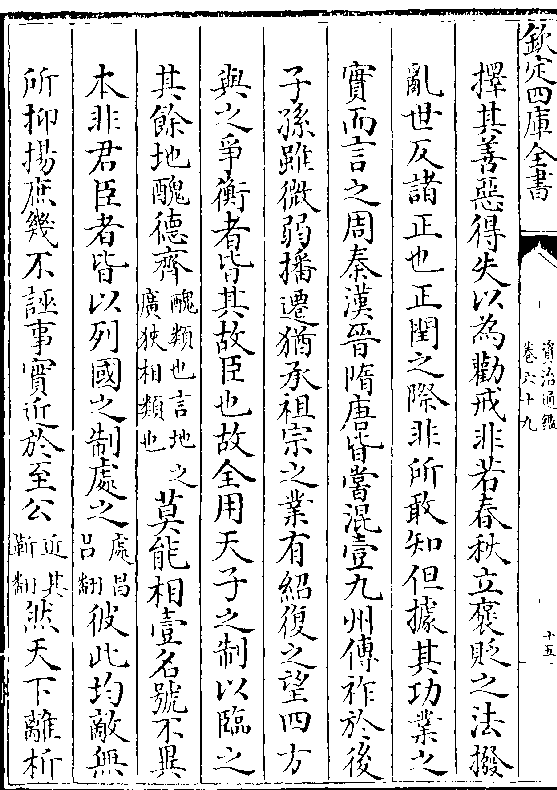 欽定四庫全書
資治通鑑
卷六十九
十五
擇其善惡得失以為勸戒非若春秋立襃貶之法撥
亂世反諸正也正閏之際非所敢知但據其功業之
實而言之周秦漢晉隋唐皆嘗混壹九州傳祚於後
子孫雖微弱播遷猶承祖宗之業有紹復之望四方
與之爭衡者皆其故臣也故全用天子之制以臨之
其餘地醜德齊醜類也言地之廣狹相類也莫能相壹名號不異
本非君臣者皆以列國之制處之處昌吕翻彼此均敵無
所抑揚庶幾不誣事實近於至公近其靳翻然天下離析